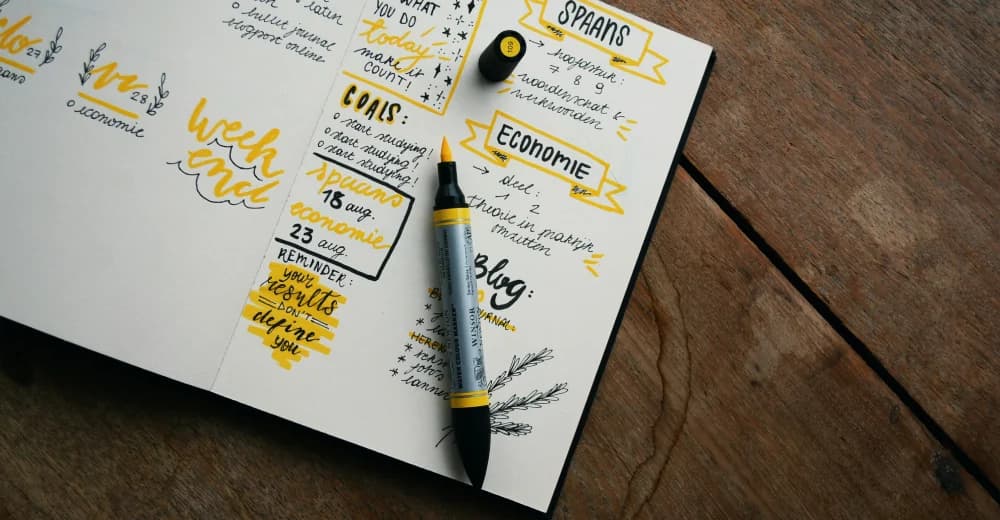 o bullet journal
blogpost online
27
vr
28
o economie
Week
end
WHAT
YOU DO
today
make it
COUNT!
GOALS:
o start studying!
o start studying!
o start studying!
spaans
18 aug.
economie
23 aug.
REMINDER:
your
results
DON'T
define
you
109
SPAANS
→ hoofdstuk:
7 8 9
woordenschat &
werkwoorden
ECONOMIE
→ deel:
1 2
theorie in praktijk
omzetten
Blog:
WINSOR